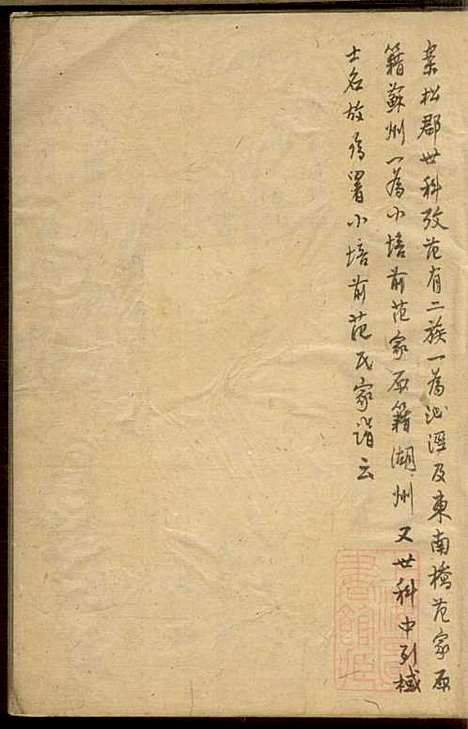 案松郡世科攷范有二族一為泗涇及東南橋范家原
籍蘇州一為小塔前范家原籍湖州又世科中列棫
士名故爲署小塔前范氏家譜云